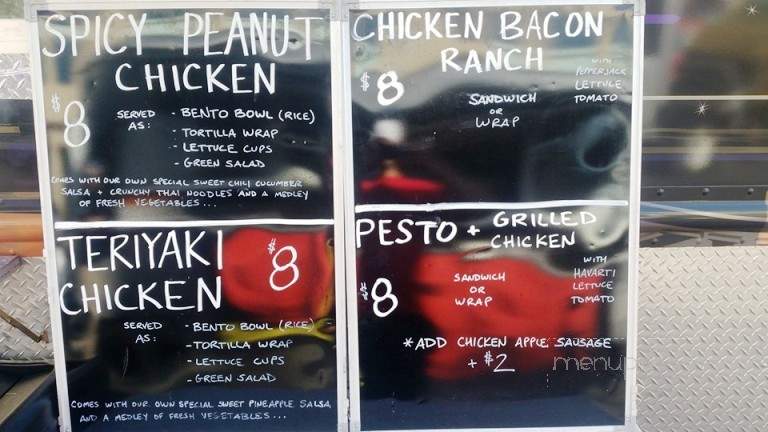 SPICY PEANUT
CHICKEN
$8
SERVED AS:
- BENTO BOWL (RICE)
- TORTILLA WRAP
- LETTUCE CUPS
- GREEN SALAD
COMES WITH OUR OWN SPECIAL SWEET CHILI CUCUMBER
SALSA + CRUNCHY THAI NOODLES AND A MEDLEY
OF FRESH VEGETABLES...
TERIYAKI
CHICKEN
$8
SERVED AS:
- BENTO BOWL (RICE)
- TORTILLA WRAP
- LETTUCE CUPS
- GREEN SALAD
COMES WITH OUR OWN SPECIAL SWEET PINEAPPLE SALSA
AND A MEDLEY OF FRESH VEGETABLES...
CHICKEN BACON
RANCH
$8
SANDWICH
OR
WRAP
WITH
PEPPERJACK
LETTUCE
TOMATO
PESTO + GRILLED
CHICKEN
$8
SANDWICH
OR
WRAP
WITH
HAVARTI
LETTUCE
TOMATO
*ADD CHICKEN APPLE SAUSAGE
+ $2
menup